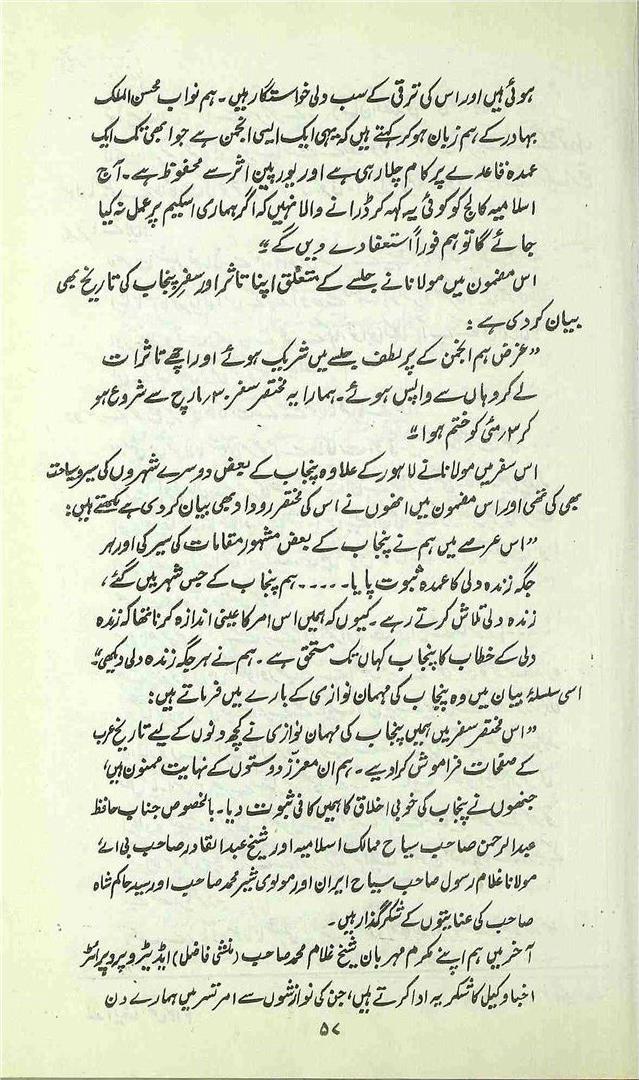 ہوئی ہیں اور اس کی ترقی کے سب دلی خواستگار ہیں۔ ہم نواب محسن الملک
بہادر کے ہم زبان ہو کر کہتے ہیں کہ یہی ایک ایسی انجمن ہے جو ابھی تک ایک
عمدہ قاعدے پر کام چلا رہی ہے اور یورپین اثر سے محفوظ ہے۔ آج
اسلامیہ کالج کو کوئی یہ کہہ کر ڈرانے والا نہیں کہ اگر ہماری اسکیم پر عمل نہ کیا
جائے گا تو ہم فوراً استعفا دے دیں گے"
اس مضمون میں مولانا نے جلسے کے متعلق اپنا تاثر اور سفرِ پنجاب کی تاریخ بھی
بیان کر دی ہے:
"غرض ہم انجمن کے پر لطف جلسے میں شریک ہوئے اور اچھے تاثرات
لے کر وہاں سے واپس ہوئے۔ ہمارا یہ مختصر سفر ۳۰؍ مارچ سے شروع ہو
کر ۳؍ مئی کو ختم ہوا"
اس سفر میں مولانا نے لاہور کے علاوہ پنجاب کے بعض دوسرے شہروں کی سیر و سیاحت
بھی کی تھی اور اس مضمون میں انھوں نے اس کی مختصر روداد بھی بیان کر دی ہے لکھتے ہیں:
"اس عرصے میں ہم نے پنجاب کے بعض مشہور مقامات کی سیر کی اور ہر
جگہ زندہ دلی کا عمدہ ثبوت پایا۔۔۔۔۔ ہم پنجاب کے جس شہر میں گئے،
زندہ دلی تلاش کرتے رہے۔ کیوں کہ ہمیں اس امر کا عینی اندازہ کرنا تھا کہ زندہ
دلی کے خطاب کا پنجاب کہاں تک مستحق ہے۔ ہم نے ہر جگہ زندہ دلی دیکھی"
اسی سلسلۂ بیان میں وہ پنجاب کی مہمان نوازی کے بارے میں فرماتے ہیں:
"اس مختصر سفر میں ہمیں پنجاب کی مہمان نوازی نے کچھ دنوں کے لیے تاریخ عرب
کے صفحات فراموش کرا دیے۔ ہم ان معزز دوستوں کے نہایت ممنون ہیں،
جنھوں نے پنجاب کی خوبی اخلاق کا ہمیں کافی ثبوت دیا۔ بالخصوص جناب حافظ
عبدالرحمن صاحب سیاح ممالک اسلامیہ اور شیخ عبدالقادر صاحب بی اے
مولانا غلام رسول صاحب سیاح ایران اور مولوی شیر محمد صاحب اور سید حاکم شاہ
صاحب کی عنایتوں کے شکر گذار ہیں۔
آخر میں ہم اپنے مکرم مہربان شیخ غلام محمد صاحب (منشی فاضل) ایڈیٹر و پروپرائٹر
اخبار وکیل کا شکریہ ادا کرتے ہیں، جن کی نوازشوں سے امرتسر میں ہمارے دن
۵۷